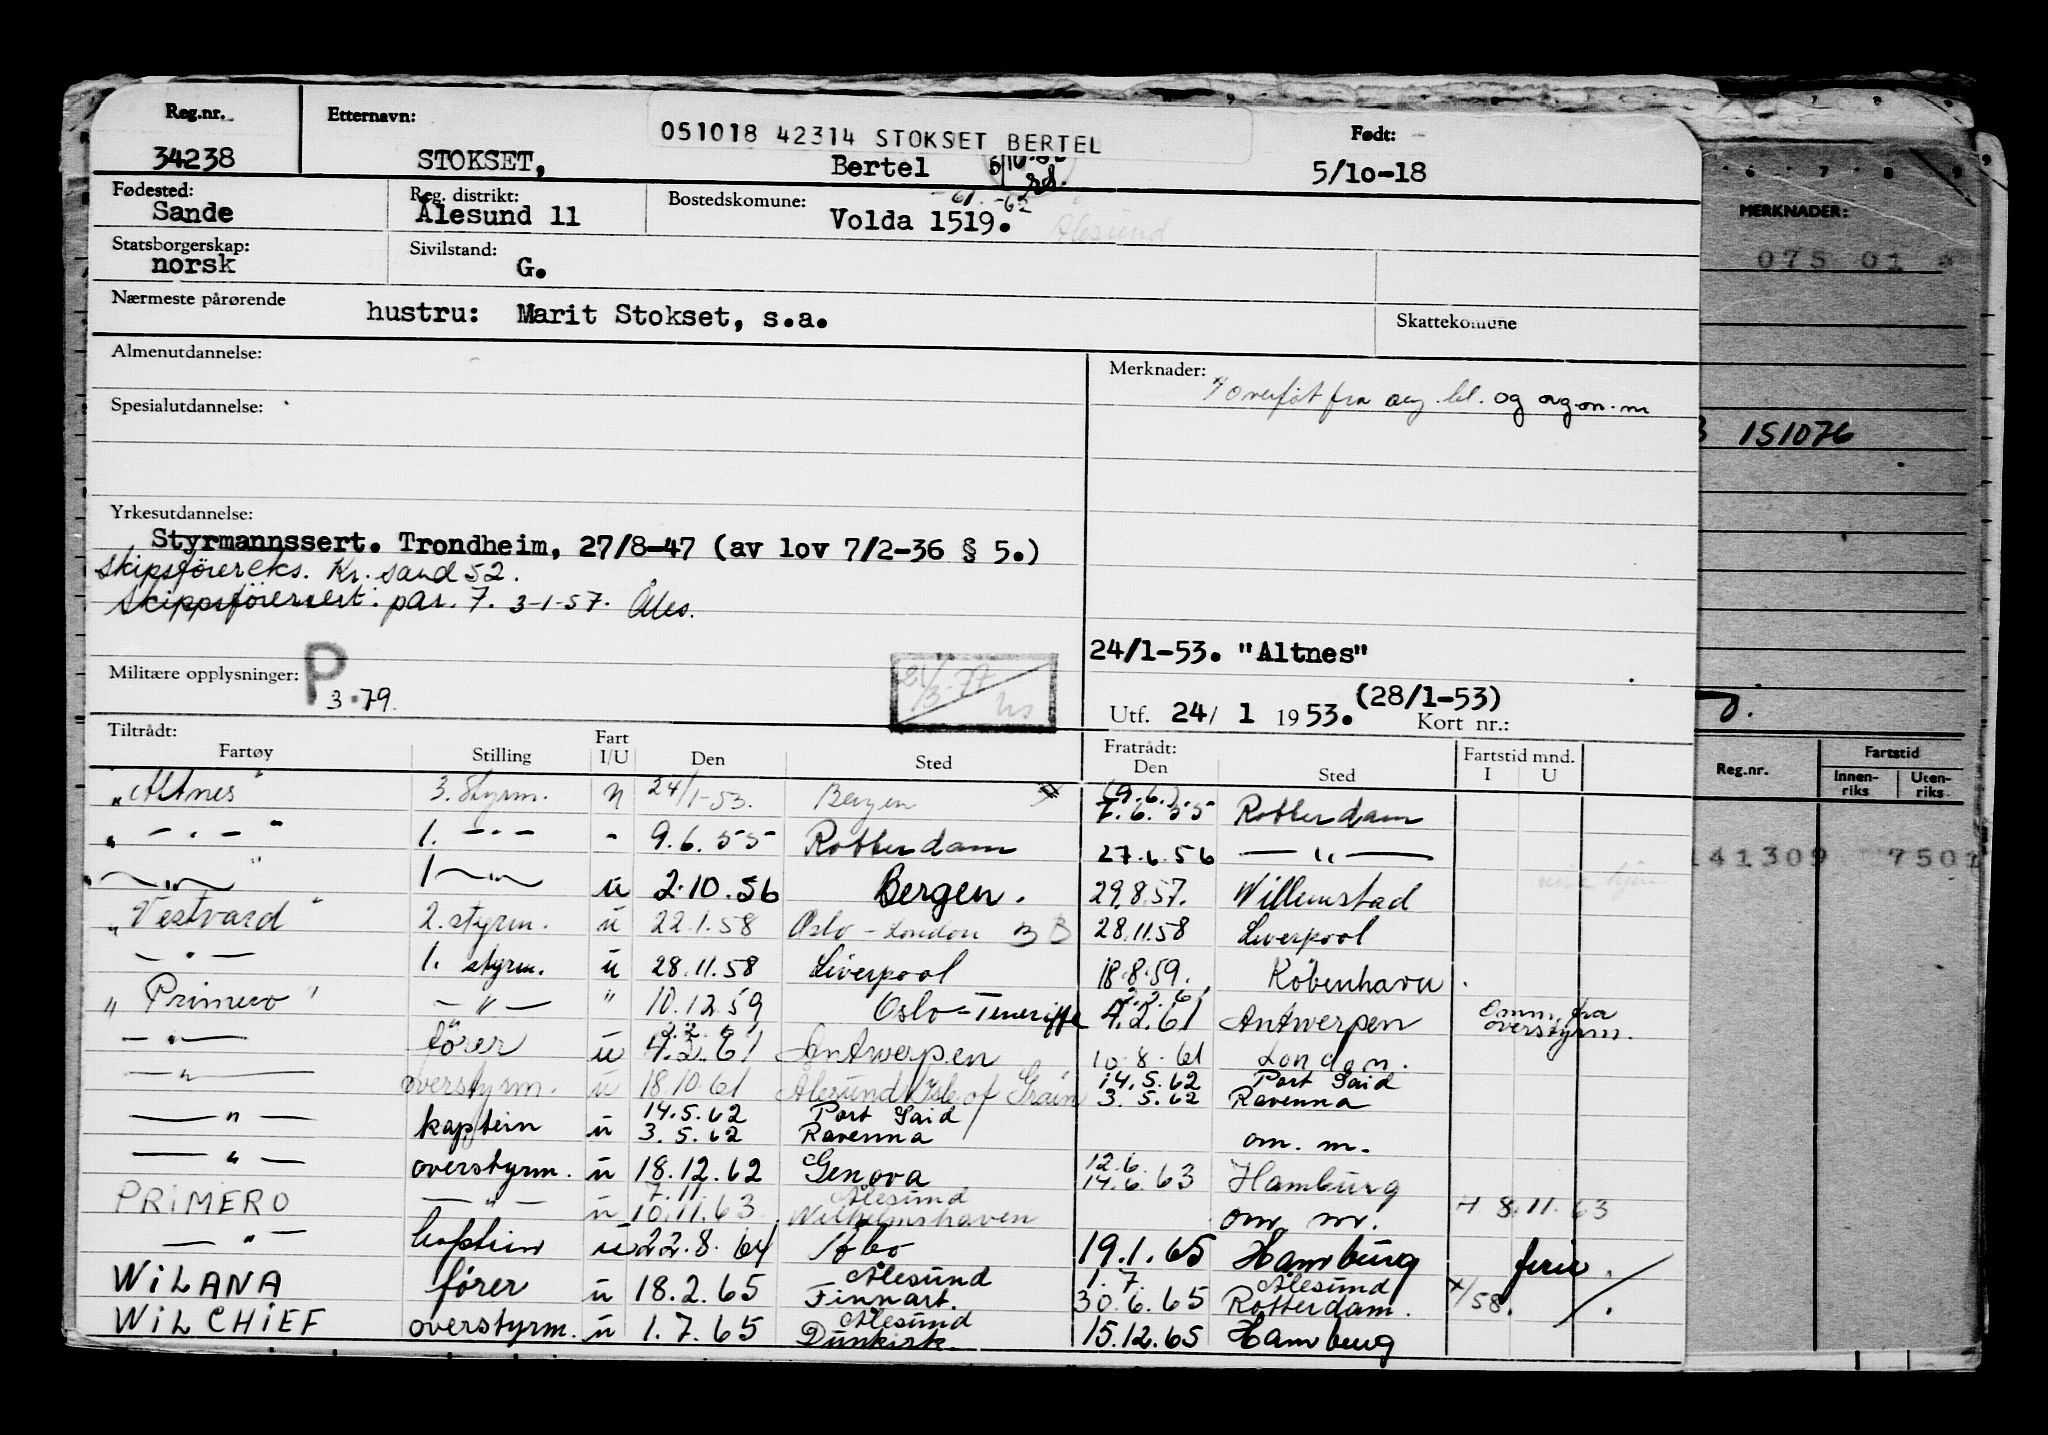 Reg.nr. Etternavn: 051018 42314 STOKSET BERTEL Født:
34238 STOKSET, Bertel 5/10-18
Fødested: Reg. distrikt: Bostedskomune: -61. -62
Sande Ålesund 11 Volda 1519. Ålesund
Statsborgerskap: Sivilstand:
norsk G.
Nærmeste pårørende hustru: Marit Stokset, s.a. Skattekomune
Almenutdannelse: Merknader:
overført fra og
Spesialutdannelse:
Yrkesutdannelse:
Styrmannssert. Trondheim, 27/8-47 (av lov 7/2-36 § 5.)
Skipsförereks. Kr. sand 52.
Skippsförersert. par. 7. 3-1-57. Åles.
24/1-53. "Altnes"
Militære opplysninger: P 3.79.
(28/1-53)
Utf. 24/ 1 1953. Kort nr.:
Tiltrådt: Fratrådt:
Fartøy Stilling Fart I/U Den Sted Den Sted Fartstid mnd. I U
"Altnes" 3. Styrm. 24/1-53. Bergen (9.6.) 7.6.55 Rotterdam
" — . — " 1. — . — - 9.6.55 Rotterdam 27.6.56 — " —
— " — 1 — " — u 2.10.56 Bergen. 29.8.57. Willemstad
"Vestvard" 2. styrm. u 22.1.58 Oslo - London B B 28.11.58 Liverpool
— . — 1. styrm. u 28.11.58 Liverpool 18.8.59. København.
"Primero" — " — " 10.12.59 Oslo-Teneriffe 2.2.61 4.2.61 Antwerpen Omm. fra overstyrm.
— . — fører u 2.2.61 4.2.61 Antwerpen 10.8.61 London.
— " — overstyrm. u 18.10.61 Ålesund/Isle of Grain 14.5.62 Port Said 3.5.62 Ravenna
— " — kaptein u 14.5.62 Port Said 3.5.62 Ravenna om. m.
— " — overstyrm. u 18.12.62 Genova 12.6. 14.6.63 Hamburg
PRIMERO — " — u 7.11 10.11.63 Ålesund Wilhelmshaven om m. 8.11.63
— " — kaptein u 22.8.64 Åbo 19.1.65 Hamburg ferie.
WILANA fører u 18.2.65 Ålesund Finnart. 1.7. 30.6.65 Ålesund Rotterdam. x/58.
WILCHIEF overstyrm. u 1.7.65 Ålesund Dunkirk. 15.12.65 Hamburg
MERKNADER:
075 01
151076
Reg.nr. Fartstid
Innen-riks Uten-riks
141309 7501